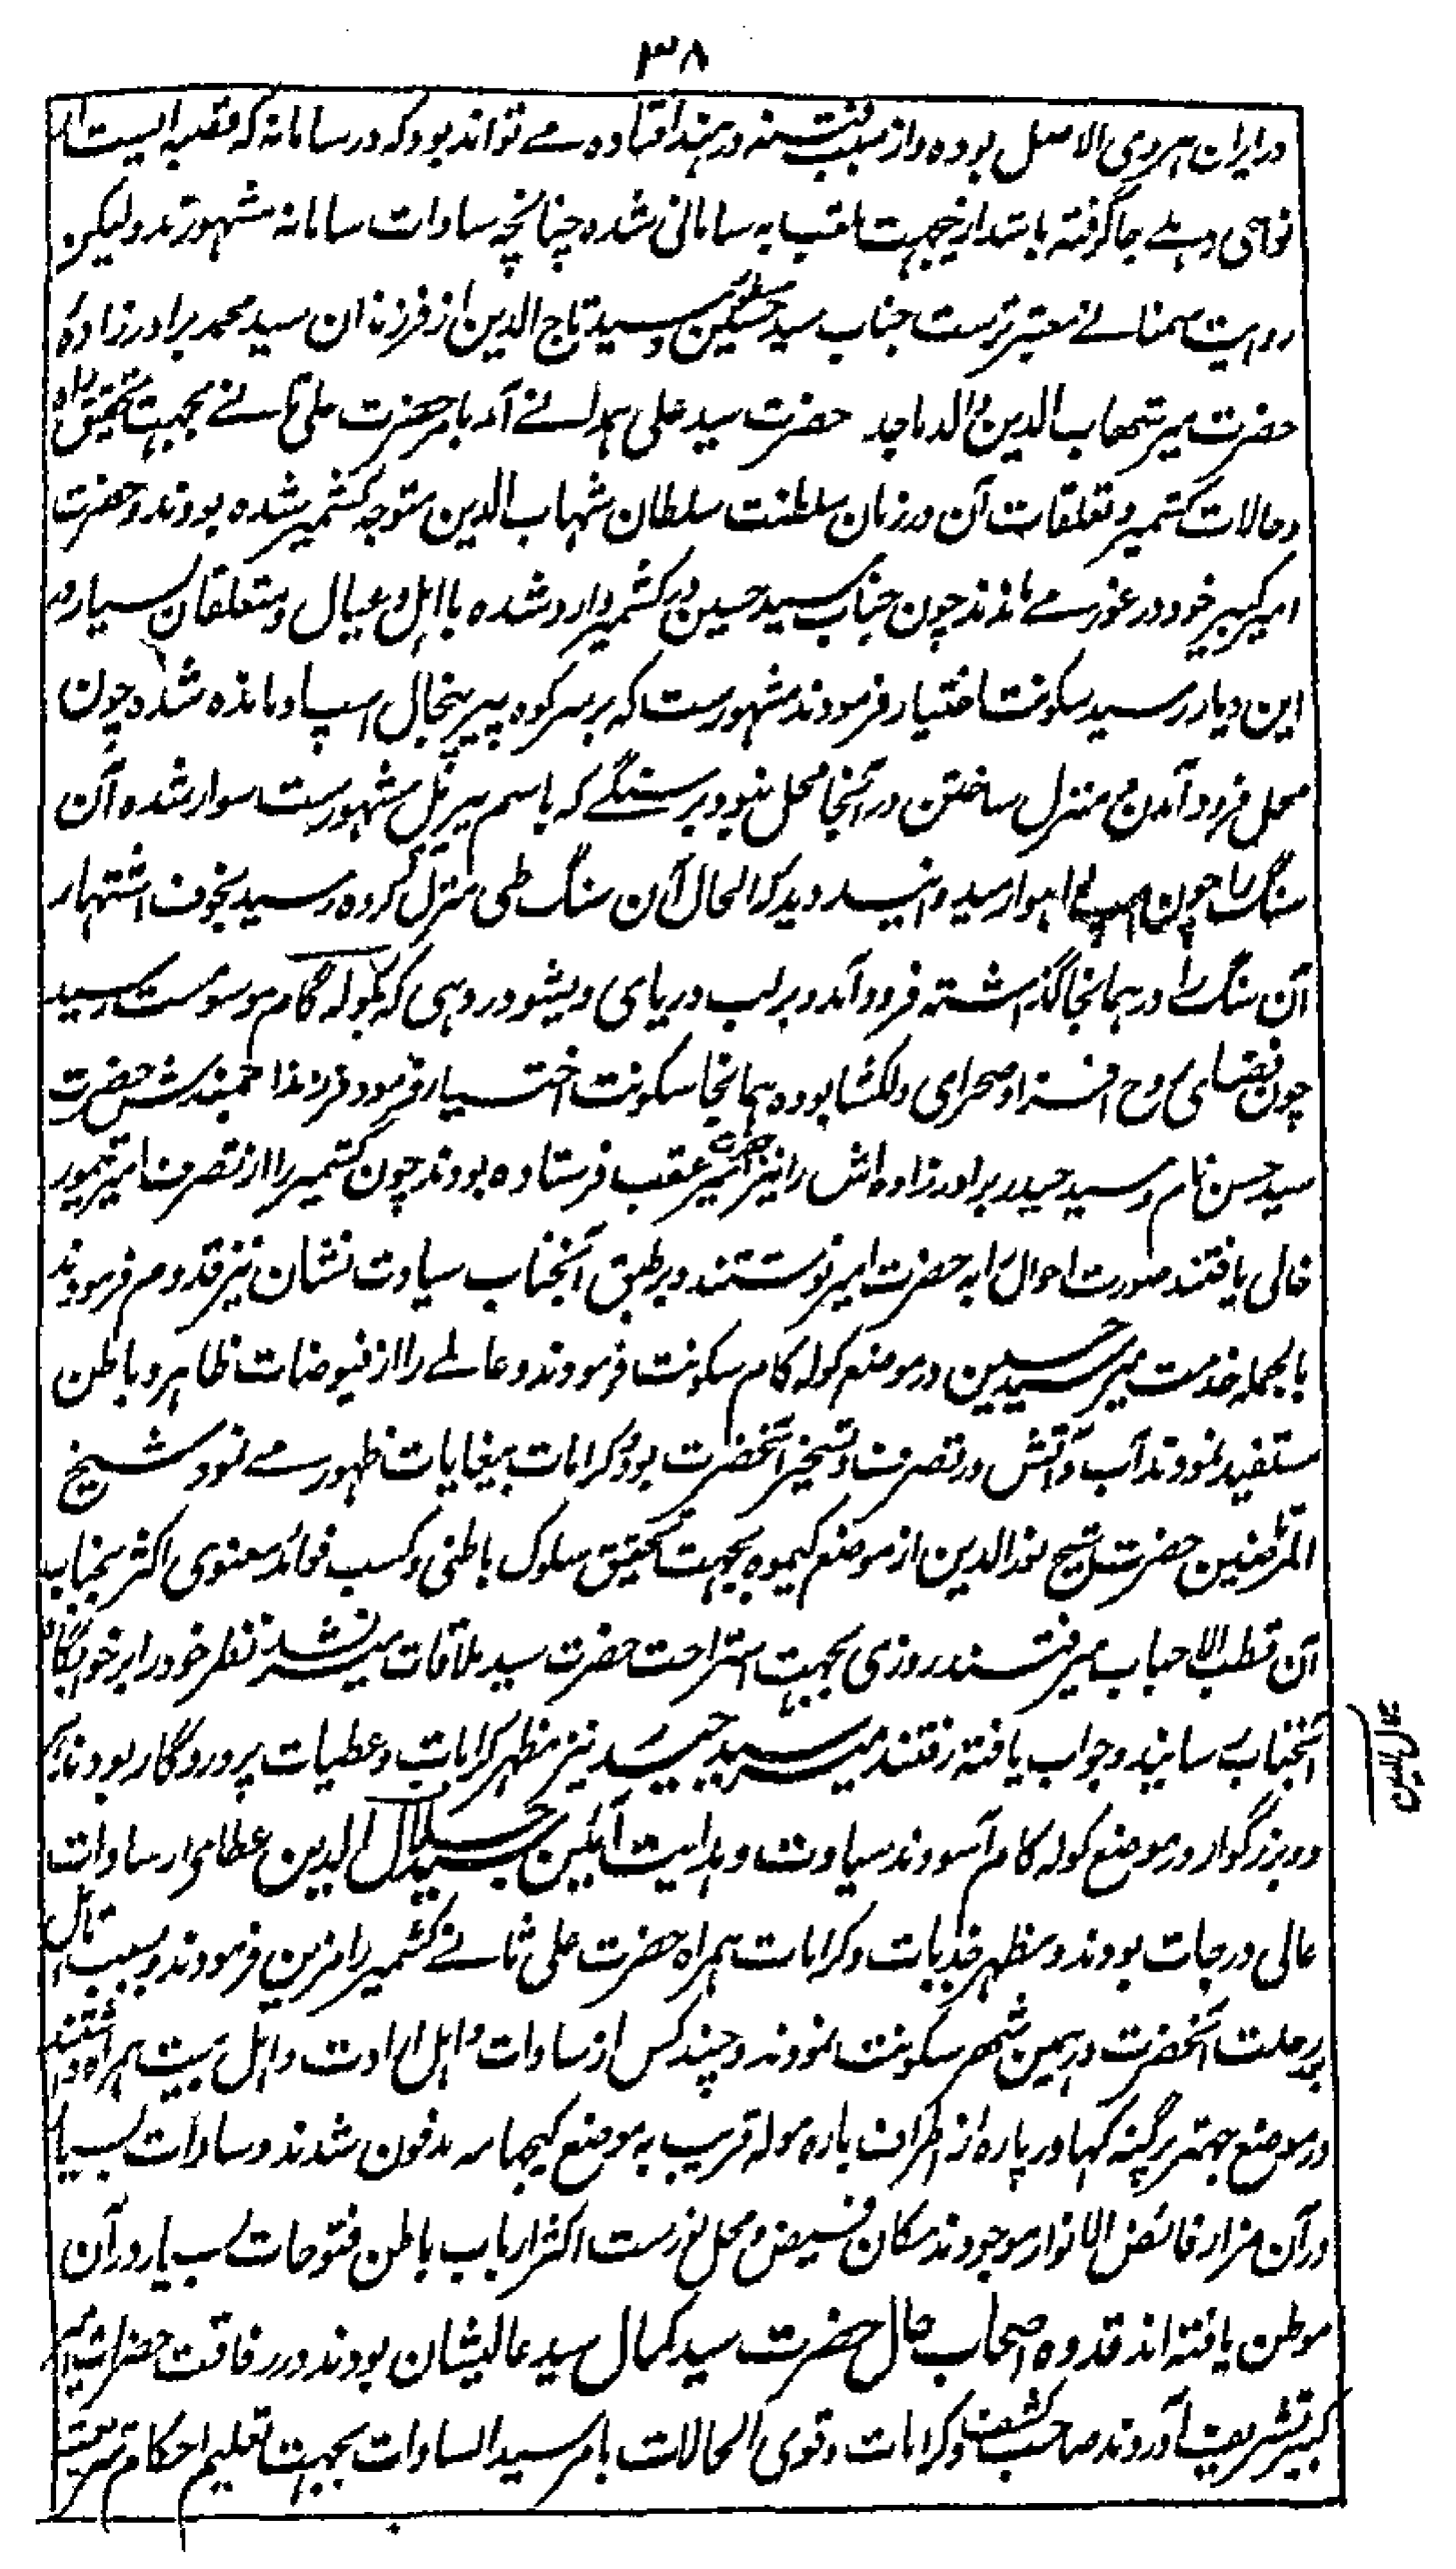 ۳۸
در ایران هروی الاصل بوده و از سبب فتنه در هند افتاده مے تواند بود که در سامانه که قصبه ایست از
نواحی دہلے جا گرفته باشد ازینجهت ملقب به سامانی شده چنانچه سادات سامانه مشهورند و لیکن
روایت سمنانے معتبرترست جناب سید حسین و سید تاج الدین از فرزندان سید محمد برادرزادۂ
حضرت میر شهاب الدین والد ماجد حضرت سید علی ہمدانے آمده بامر حضرت علی ثانے بجهت تحقیق راه
و حالات کشمیر و تعلقات آن در زمان سلطنت سلطان شهاب الدین متوجه کشمیر شده بودند و حضرت
امیر کبیر خود در غور مے ماندند چون جناب سید حسین در کشمیر وارد شده با اہل و عیال و متعلقان بسیار در
این دیار رسید سکونت اختیار فرمودند مشهورست که بر سر کوه پیر پنجال اسپ او مانده شده چون
محل فرود آمدن و منزل ساختن در آنجا محل نبود بر سنگے که باسم مشهورست سوار شده آن
سنگ را چون اسپ راہوار میدوانید دید که الحال آن سنگ طی منزل کرده رسید بخوف اشتهار
آن سنگ را در ہمانجا گذاشته فرود آمد و بر لب دریای ویشو در دہی که بکوله گام موسومست رسید
چون فضای روح افزا و صحرای دلکشا بوده ہمانجا سکونت اختیار فرمود فرزند ارجمندش حضرت
سید حسن نام و سید حیدر برادرزاده اش را نیز حضرت امیر عقب فرستاده بودند چون کشمیر را از تصرف امیر تیمور
خالی یافتند صورت احوال را به حضرت امیر نوشتند و بر طبق آنجناب سیادت نشان نیز قدوم فرمودند
بالجمله خدمت میر سید حسین در موضع کوله کام سکونت فرمودند و عالمے را از فیوضات ظاہر و باطن
مستفید نمودند آب و آتش در تصرف و تسخیر آنحضرت بود و کرامات بیغایات ظهور مے نمود شیخ
المرتضین حضرت شیخ نورالدین از موضع کیموه بجهت تحقیق سلوک باطنی و کسب فوائد معنوی اکثر بجناب
آن قطب الاحباب میرفتند روزی بجهت استراحت حضرت سید ملاقات میسر نشد نظر خود را بر خوابگاه
آنجناب رسانید و جواب یافته رفتند میر سید حیدر نیز مظهر کرامات و عطیات پروردگار بودند ہر
دو بزرگوار در موضع کوله کام آسودند سیادت و ہدایت آئین سید جلال الدین عطای از سادات
جلال الدین
عالی درجات بودند و مظهر جذبات و کرامات ہمراه حضرت علی ثانے کشمیر را مزین فرمودند و بسبب تاہل
بر رحلت آنحضرت در ہمین شهر سکونت نمودند و چند کس از سادات و اہل ارادت و اہل بیت ہمراه داشتند
در موضع پرگنه کهاورپاره از اطراف باره موله قریب به موضع کیچهامه مدفون شدند و سادات بسیار
در آن مزار فائض الانوار موجودند مکان فیض و محل نورست اکثر ارباب باطن فتوحات بسیار در آن
موطن یافته اند قدوه اصحاب حال حضرت سید کمال سید عالیشان بودند در رفاقت حضرت امیر
کبیر تشریف آوردند صاحب کشف و کرامات و قوی الحالات بامر سید السادات بجهت تعلیم احکام شریعت